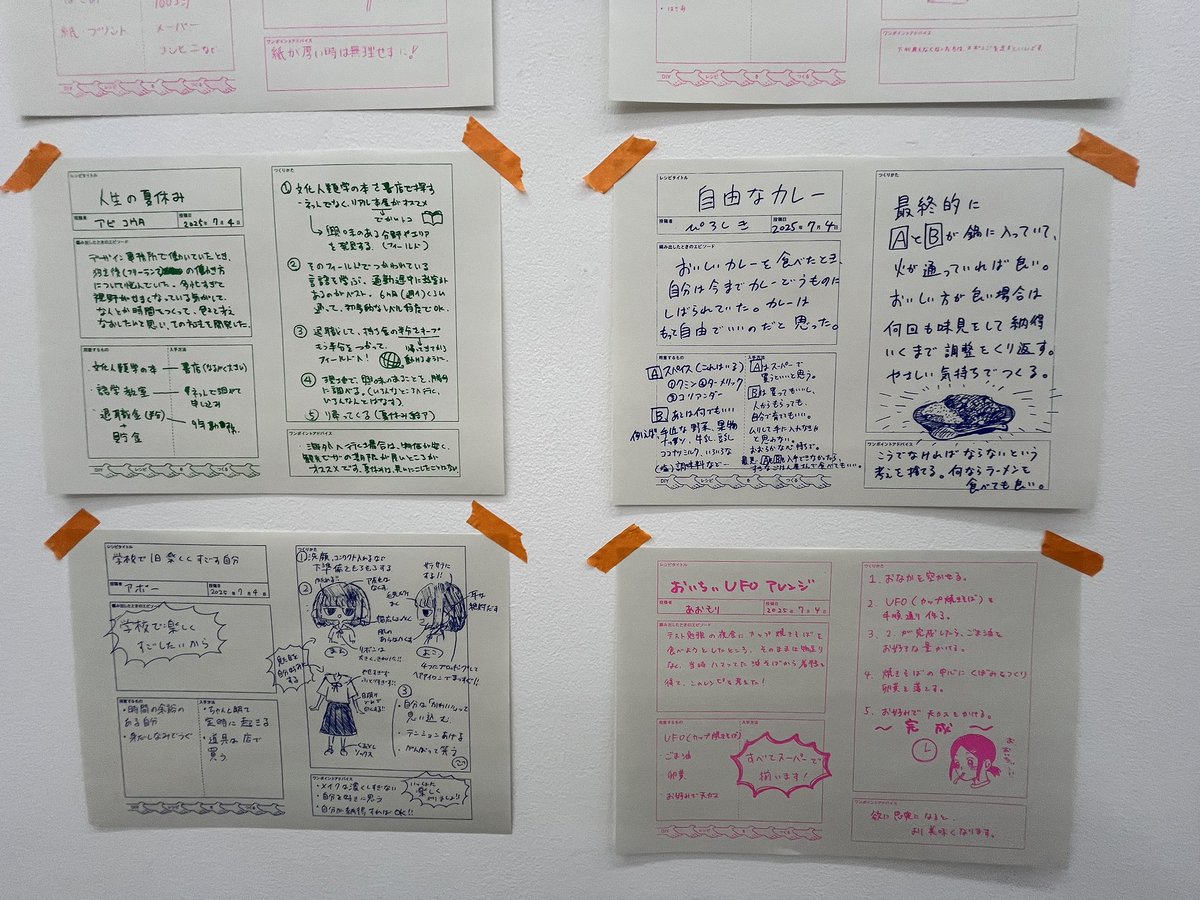 100コン
紙・プリント
メーカー
コンビニなど
ワンポイントアドバイス
紙が厚い時は無理せずに!
DIY レシピ を つくる
・はさみ
ワンポイントアドバイス
DIY レシピ を つくる
レシピタイトル
人生の夏休み
投稿者
アピ コウA
投稿日
2025年7月4日
編み出したときのエピソード
デザイン事務所で働いていたとき、
の働き方
について悩んでいた。多忙すぎて
視野がせまくなっている気がして、
なんとか時間をつくって、色々と考え
なおしたいと思い、この方法を開発した。
用意するもの
入手方法
文化人類学の本
書店
語学教室
ネットで調べて
申し込み
退職金
+
貯金
DIY レシピ を つくる
つくりかた
① 文化人類学の本を書店で探す
ネットでなく、リアル本屋がオススメ
でかいトコ
興味のある分野やエリア
を発見する。(フィールド)
② そのフィールドでつかわれている
言語を学ぶ。通勤途中に教室が
あるのがベスト。6ヵ月(週1)くらい
通って、初歩的なレベル程度でOK.
③ 退職して、
もう半分をつかって、
フィールドへ!
④ 現地で、興味のあることを、勝手
に調べる。(いろんなところへ行く、
いろんな人とはなす)
⑤ り帰ってくる(夏休み終了)
ワンポイントアドバイス
海外へ行く場合は、物価が安く、
観光ビザの期限が長いところが
オススメです。
レシピタイトル
自由なカレー
投稿者
ぴろしき
投稿日
2025年7月4日
編み出したときのエピソード
おいしいカレーを食べたとき、
自分は今までカレーというものに
しばられていた。カレーは
もって自由でいいのだと思った。
用意するもの
A スパイス(これはいる)
①クミン②ターメリック
③コリアンダー
B あとは何でもいい
例えば 手近な野菜、果物
ココナツミルク、いろいろな
(塩)調味料など…
入手方法
Aはスーパーで
買うといいと思う。
Bは買ってもいいし、
人からもらっても、
自分で育てもいい。
ムリして手に入れなきゃ
と思わない。
おおらかな心持ちで。
DIY レシピ を つくる
つくりかた
最終的に
AとBが鍋に入っていて、
火が通っていれば良い。
おいしい方が良い場合は
何回も味見をして納得
いくまで調整をくり返す。
やさしい気持ちでつくる。
ワンポイントアドバイス
こうでなければならないという
考えを捨てる。何ならラーメンを
食べても良い。
レシピタイトル
学校で1日楽しくすごす自分
投稿者
アポー
投稿日
2025年7月4日
編み出したときのエピソード
学校で楽しく
すごしたいから
用意するもの
・時間の余裕の
ある自分
・身だしなみどうぐ
入手方法
・ちゃんと朝
定時に起きる
・道具は店で
買う
DIY レシピ を つくる
つくりかた
①洗顔、コンタクト入れるなど
下準備をもろもろする
②
サラサラ
にする!!
まえ
よこ
リボンは
見た目を
自分好みに
する
③
・自分は「かわいい」って
思い込む
・テンションあげる
・がんばって笑う
ソックス
ワンポイントアドバイス
・メイクは濃くしすぎない
・自分を好きに思う
・自分が納得すればOK!!
レシピタイトル
おいちぃUFOアレンジ
投稿者
あおもり
投稿日
2025年7月4日
編み出したときのエピソード
テスト勉強の夜食にカップ焼きそばを
食べようとしたところ、そのままじゃ物足り
なく、当時ハマってた油そばから着想を
得て、このレシピを考えた!
用意するもの
入手方法
UFO(カップ焼きそば)
ごま油
卵黄
お好みで天カス
すべてスーパーで
揃います!
DIY レシピ を つくる
つくりかた
1. おなかを空かせる。
2. UFO(カップ焼きそば)を
手順通り作る。
3. 2.が完成したら、ごま油を
お好きな量かける。
4. 焼きそばの中心にくぼみをつくり
卵黄を落とす。
5. お好みで天カスをかける。
~ 完成 ~
ワンポイントアドバイス
欲に忠実になると、
より美味くなります。